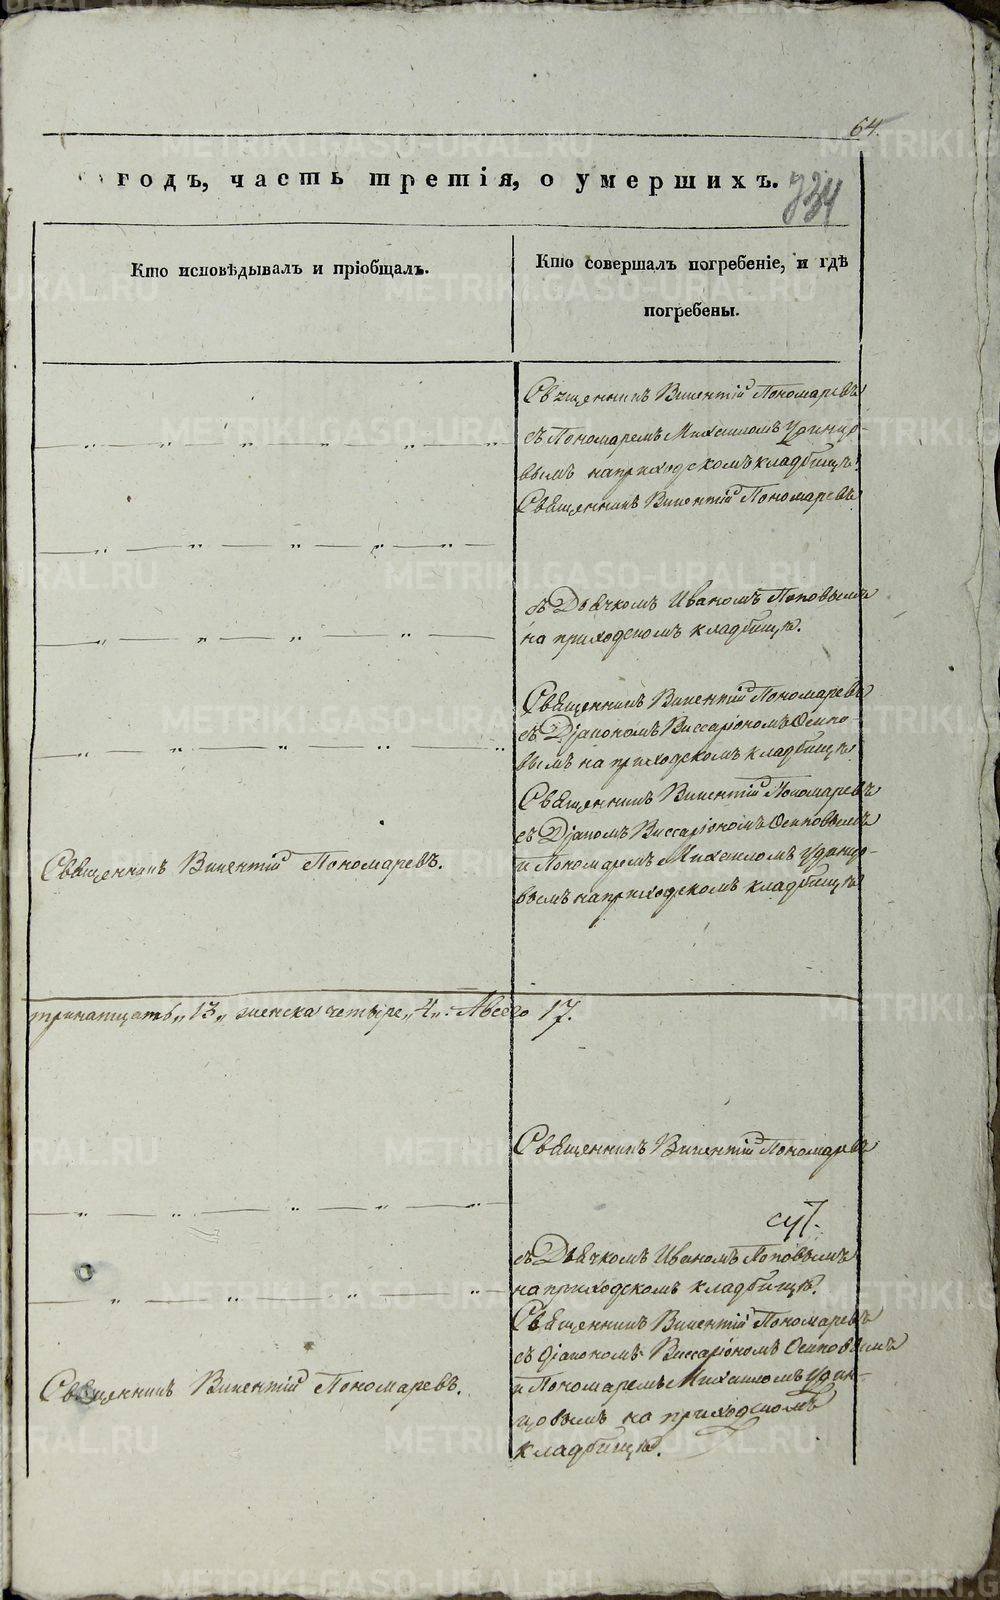 64.
годъ, часть третія, о умершихъ.
734
Кто исповѣдывалъ и пріобщалъ.
Кто совершалъ погребеніе, и гдѣ
погребены.
Священникъ Викентій Пономаревъ
съ Пономаремъ Михаиломъ Удинцо-
вымъ на приходскомъ кладбищѣ.
Священникъ Викентій Пономаревъ
съ Дьячкомъ Иваномъ Поповымъ
на приходскомъ кладбищѣ.
Священникъ Викентій Пономаревъ
съ Діакономъ Виссаріономъ Осипо-
вымъ на приходскомъ кладбищѣ.
Священникъ Викентій Пономаревъ.
Священникъ Викентій Пономаревъ
съ Діакомъ Виссаріономъ Осиповымъ
и Пономаремъ Михаиломъ Удинцо-
вымъ на приходскомъ кладбищѣ
тринатцать „13„ женска четыре „4„. А всего 17.
Священникъ Викентій Пономаревъ
съ Дьячкомъ Иваномъ Поповымъ
на приходскомъ кладбищѣ.
Священникъ Викентій Пономаревъ.
Священникъ Викентій Пономаревъ
съ діакономъ Виссаріономъ Осиповымъ
и Пономаремъ Михаиломъ Удин-
цовымъ на приходскомъ
кладбищѣ.
METRIKI.GASO-URAL.RU